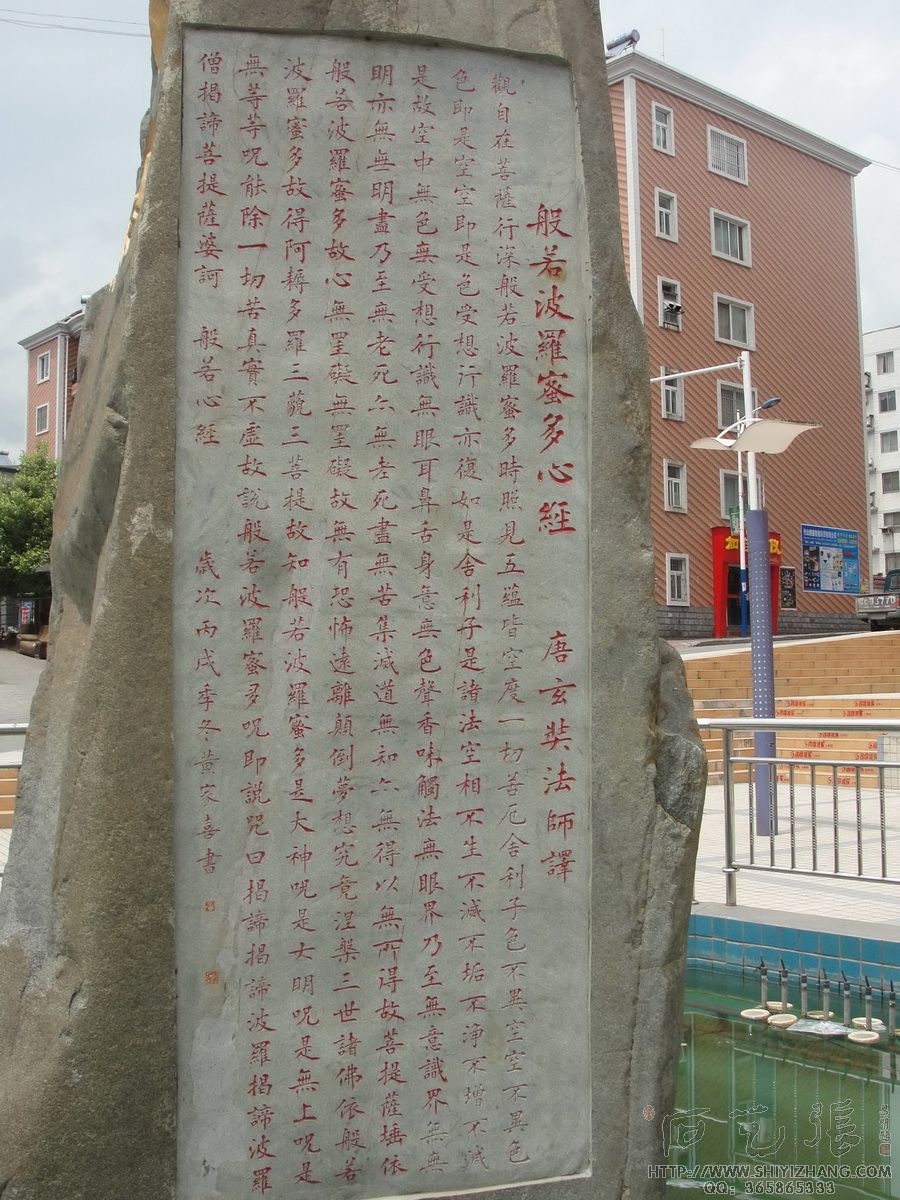 般若波羅蜜多心經 唐玄奘法師譯
觀自在菩薩行深般若波羅蜜多時照見五蘊皆空度一切苦厄舍利子色不異空空不異色
色即是空空即是色受想行識亦復如是舍利子是諸法空相不生不滅不垢不淨不增不減
是故空中無色無受想行識無眼耳鼻舌身意無色聲香味觸法無眼界乃至無意識界無無
明亦無無明盡乃至無老死亦無老死盡無苦集滅道無知亦無得以無所得故菩提薩埵依
般若波羅蜜多故心無罣礙無罣礙故無有恐怖遠離顛倒夢想究竟涅槃三世諸佛依般若
波羅蜜多故得阿耨多羅三藐三菩提故知般若波羅蜜多是大神咒是大明咒是無上咒是
無等等咒能除一切苦真實不虛故說般若波羅蜜多咒即說咒曰揭諦揭諦波羅揭諦波羅
僧揭諦菩提薩婆訶 般若心經 歲次丙戌季冬黃家喜書
石艺張
HTTP://WWW.SHIYIZHANG.COM
QQ: 365865333